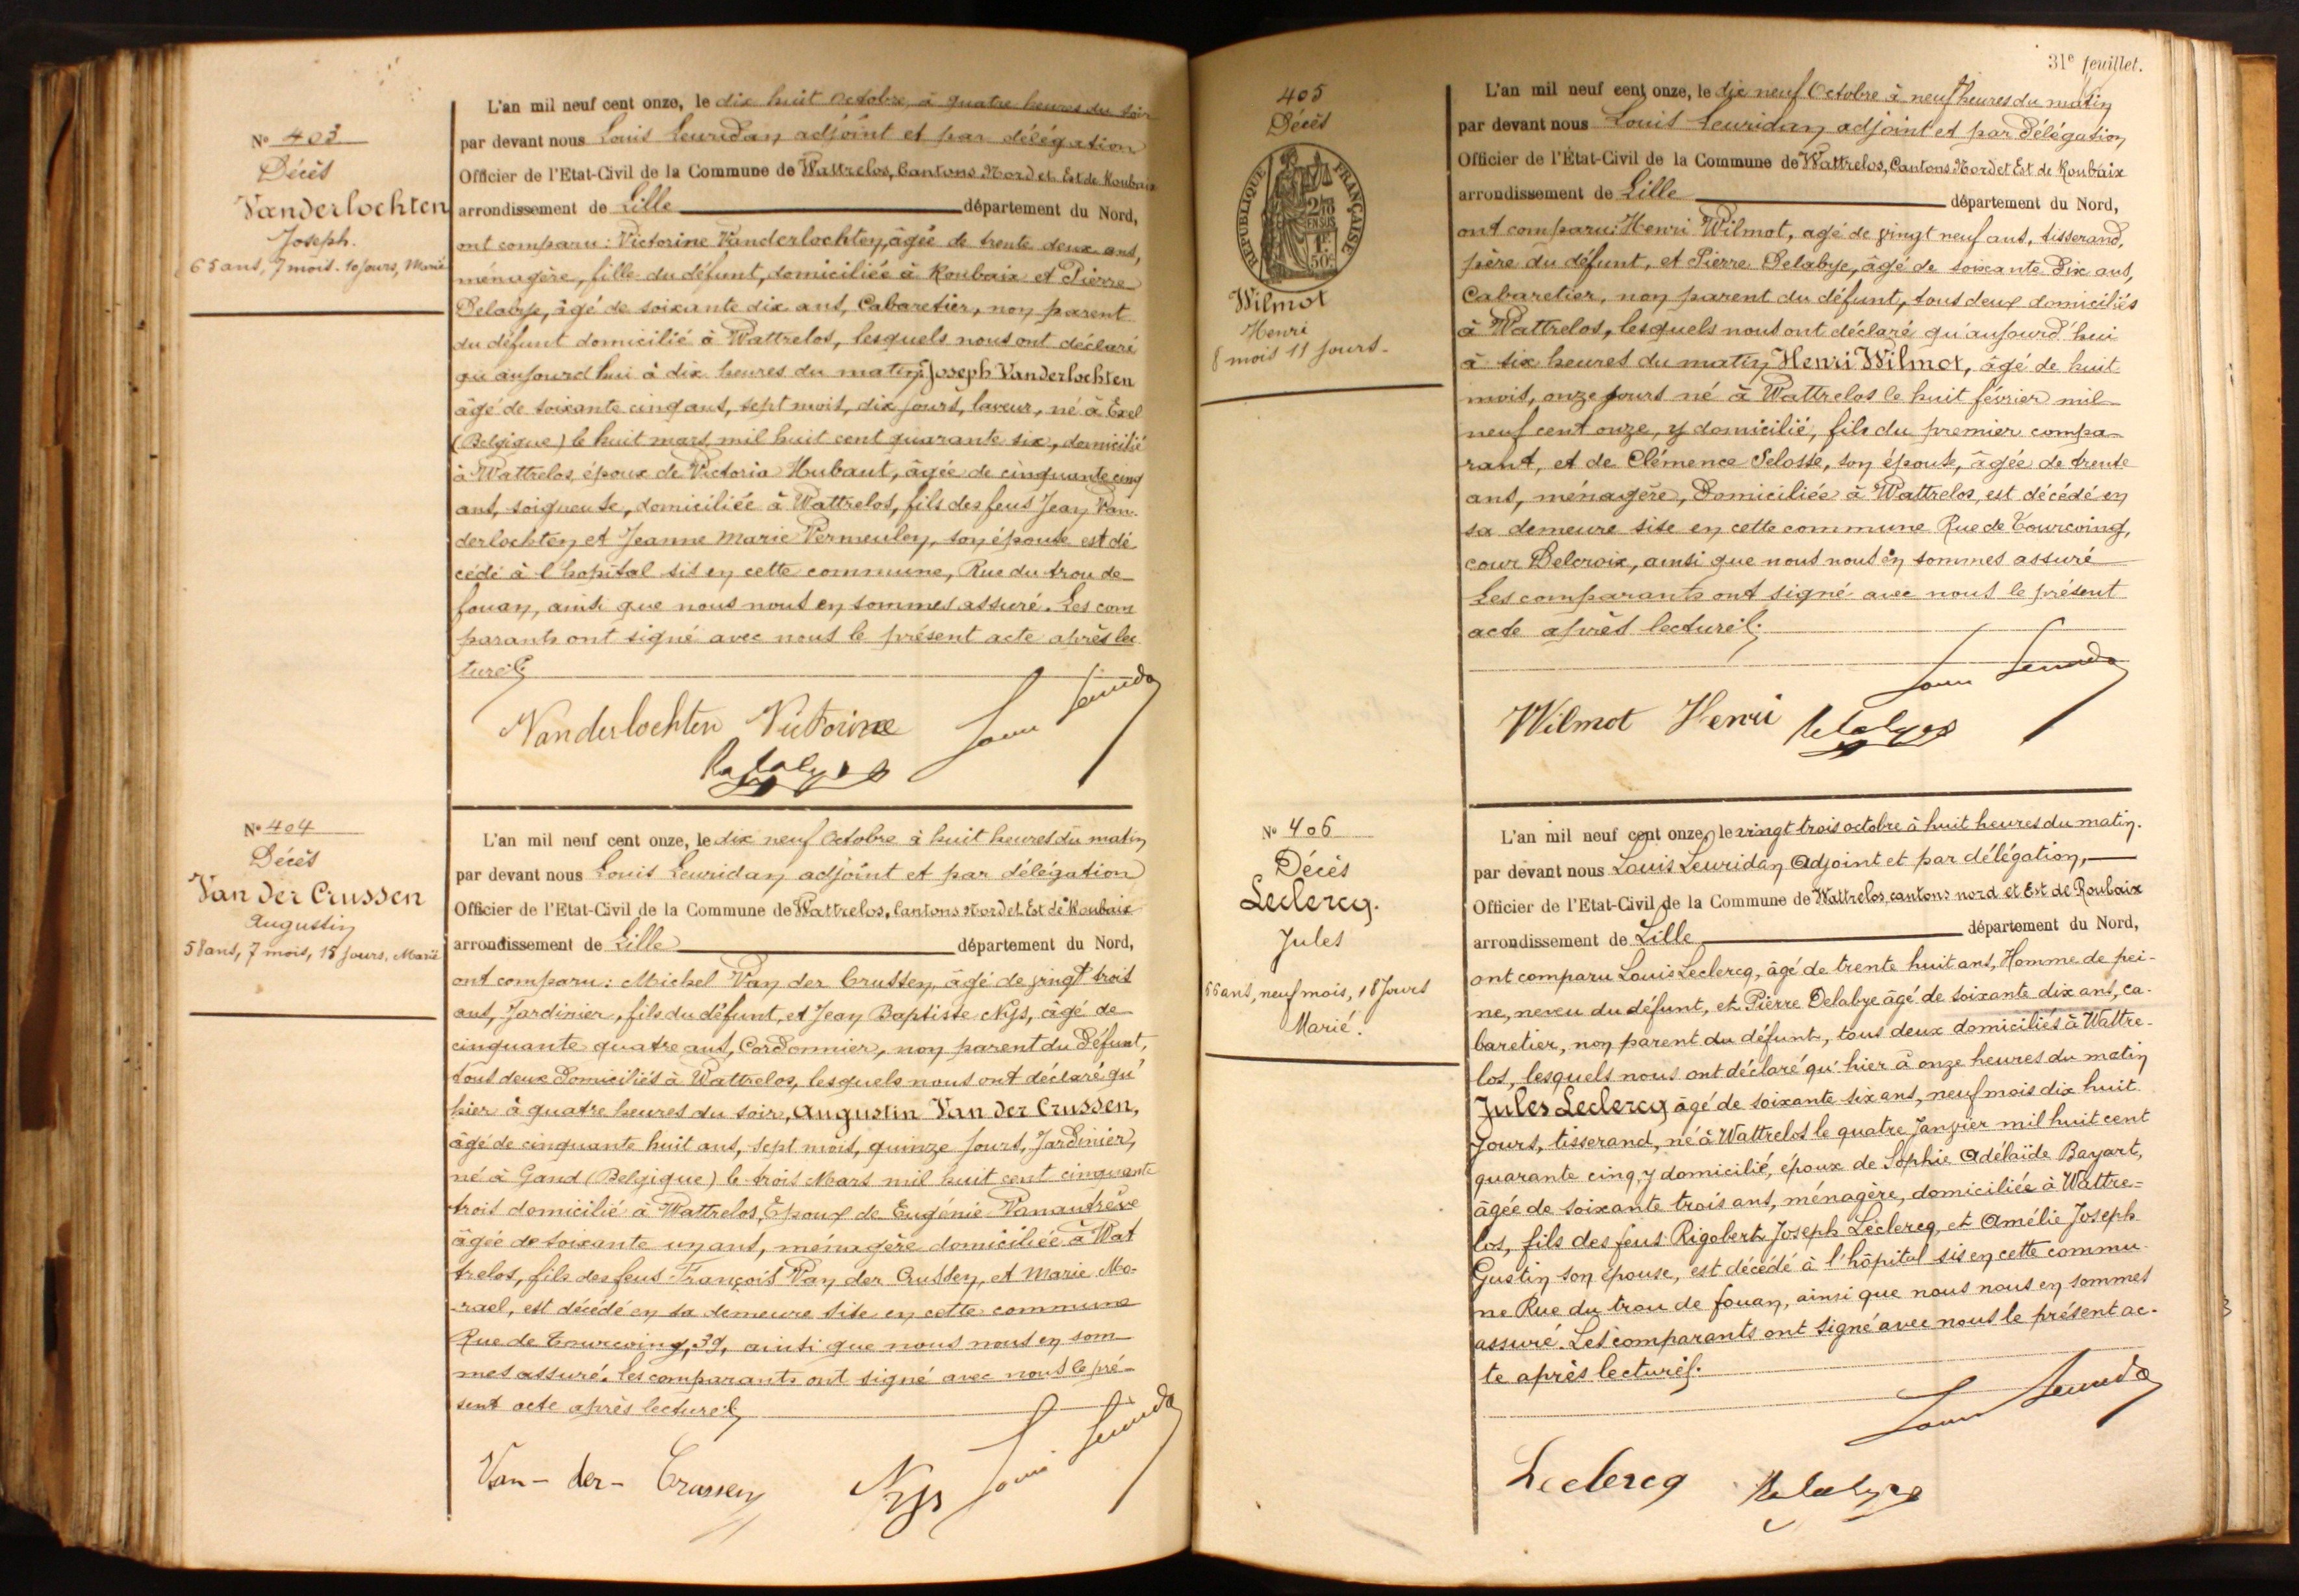 N° 403
Décès
Vanderlochten
Joseph.
65 ans, 7 mois. 10 jours, Marié
L'an mil neuf cent onze, le dix huit Octobre, à quatre heures du soir
par devant nous Louis Leuridan adjoint et par délégation
Officier de l'Etat-Civil de la Commune de Wattrelos, Cantons Nord et Est de Roubaix
arrondissement de Lille département du Nord,
ont comparu: Victorine Vanderlochten, âgée de trente deux ans,
ménagère, fille du défunt, domiciliée à Roubaix et Pierre
Delabye, âgé de soixante dix ans, Cabaretier, non parent
du défunt domicilié à Wattrelos, lesquels nous ont déclaré
qu'aujourd'hui à dix heures du matin Joseph Vanderlochten
âgé de soixante cinq ans, sept mois, dix jours, laveur, né à Exel
(Belgique) le huit mars mil huit cent quarante six, domicilié
à Wattrelos, époux de Victoria Hubaut, âgée de cinquante cinq
ans, soigneuse, domiciliée à Wattrelos, fils des feus Jean Van-
derlochten et Jeanne Marie Vermeulen, son épouse est dé
cédé à l'hopital sis en cette commune, Rue du trou de
fouan, ainsi que nous nous en sommes assuré. Les com
parants ont signé avec nous le présent acte après lec
ture.
Vanderlochten Victorine
Delabye
Louis Leuridan
N° 404
Décès
Van der Crussen
Augustin
58 ans, 7 mois, 15 jours, Marié
L'an mil neuf cent onze, le dix neuf Octobre à huit heures du matin
par devant nous Louis Leuridan adjoint et par délégation
Officier de l'Etat-Civil de la Commune de Wattrelos, Cantons Nord et Est de Roubaix
arrondissement de Lille département du Nord,
ont comparu: Michel Van der Crussen, âgé de vingt trois
ans, Jardinier, fils du défunt, et Jean Baptiste Nijs, âgé de
cinquante quatre ans, Cordonnier, non parent du Défunt,
tous deux Domiciliés à Wattrelos, lesquels nous ont déclaré qu'
hier à quatre heures du soir, Augustin Van der Crussen,
âgé de cinquante huit ans, sept mois, quinze jours, Jardinier,
né à Gand (Belgique) le trois Mars mil huit cent cinquante
trois domicilié à Wattrelos, Epoux de Eugénie Vanautrève
âgée de soixante un ans, ménagère domiciliée à Wat
trelos, fils des feus François Van der Crussen, et Marie Mo-
rael, est décédé en sa demeure sise en cette commune
Rue de Tourcoing, 39, ainsi que nous nous en som
mes assuré. Les comparants ont signé avec nous le pré-
sent acte après lecture.
Van - der - Crussen
Nijs
Louis Leuridan
31e feuillet.
405
Décès
RÉPUBLIQUE FRANÇAISE
2/10
EN SUS
1F
50c
Wilmot
Henri
8 mois 11 jours.
L'an mil neuf cent onze, le dix neuf Octobre à neuf heures du matin
par devant nous Louis Leuridan adjoint et par Délégation
Officier de l'État-Civil de la Commune de Wattrelos, Cantons Nord et Est de Roubaix
arrondissement de Lille département du Nord,
ont comparu: Henri Wilmot, agé de vingt neuf ans, tisserand,
père du défunt, et Pierre Delabye, âgé de soixante Dix ans,
Cabaretier, non parent du défunt, tous deux domiciliés
à Wattrelos, lesquels nous ont déclaré qu'aujourd'hui
à six heures du matin Henri Wilmot, âgé de huit
mois, onze jours né à Wattrelos le huit février mil
neuf cent onze, y domicilié, fils du premier compa-
rant, et de Clémence Selosse, son épouse, âgée de trente
ans, ménagère, Domiciliée à Wattrelos, est décédé en
sa demeure sise en cette commune Rue de Tourcoing,
cour Delcroix, ainsi que nous nous en sommes assuré
Les comparants ont signé avec nous le présent
acte après lecture.
Wilmot Henri
Delabye
Louis Leuridan
N° 406
Décès
Leclercq.
Jules
66 ans, neuf mois, 18 Jours
Marié.
L'an mil neuf cent onze, le vingt trois octobre à huit heures du matin.
par devant nous Louis Leuridan Adjoint et par délégation,
Officier de l'Etat-Civil de la Commune de Wattrelos, cantons nord et Est de Roubaix
arrondissement de Lille département du Nord,
ont comparu Louis Leclercq, âgé de trente huit ans, Homme de pei-
ne, neveu du défunt, et Pierre Delabye âgé de soixante dix ans, ca-
baretier, non parent du défunt, tous deux domiciliés à Wattre-
los, lesquels nous ont déclaré qu'hier à onze heures du matin
Jules Leclercq âgé de soixante six ans, neuf mois dix huit
Jours, tisserand, né à Wattrelos le quatre Janvier mil huit cent
quarante cinq, y domicilié, époux de Sophie Adélaïde Bayart,
âgée de soixante trois ans, ménagère, domiciliée à Wattre-
los, fils des feus Rigobert Joseph Leclercq, et Amélie Joseph
Gustin son épouse, est décédé à l'hôpital sis en cette commu-
ne Rue du trou de fouan, ainsi que nous nous en sommes
assuré. Les comparants ont signé avec nous le présent ac-
te après lecture.
Leclercq
Delabye
Louis Leuridan